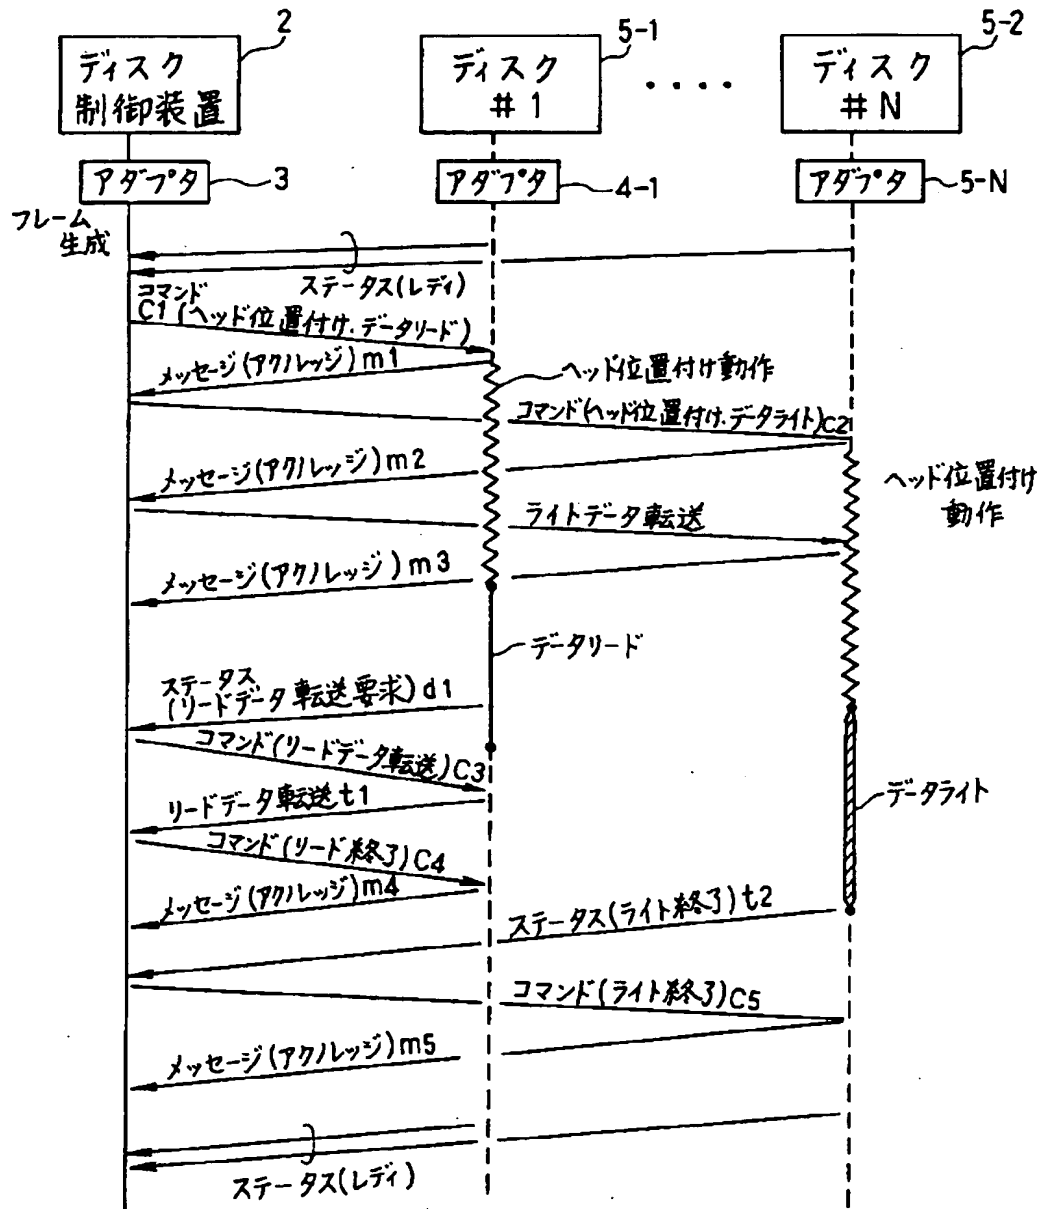 2
5-1
5-2
ディスク
制御装置
ディスク
#1
ディスク
#N
アダプタ
3
アダプタ
4-1
アダプタ
5-N
フレーム
生成
ステータス(レディ)
コマンド
C1(ヘッド位置付け.データリード)
メッセージ(アクノレッジ)m1
ヘッド位置付け動作
コマンド(ヘッド位置付け.データライト)C2
メッセージ(アクノレッジ)m2
ヘッド位置付け
動作
ライトデータ転送
メッセージ(アクノレッジ)m3
データリード
ステータス
(リードデータ転送要求)d1
コマンド(リードデータ転送)C3
リードデータ転送t1
データライト
コマンド(リード終了)C4
メッセージ(アクノレッジ)m4
ステータス(ライト終了)t2
コマンド(ライト終了)C5
メッセージ(アクノレッジ)m5
ステータス(レディ)